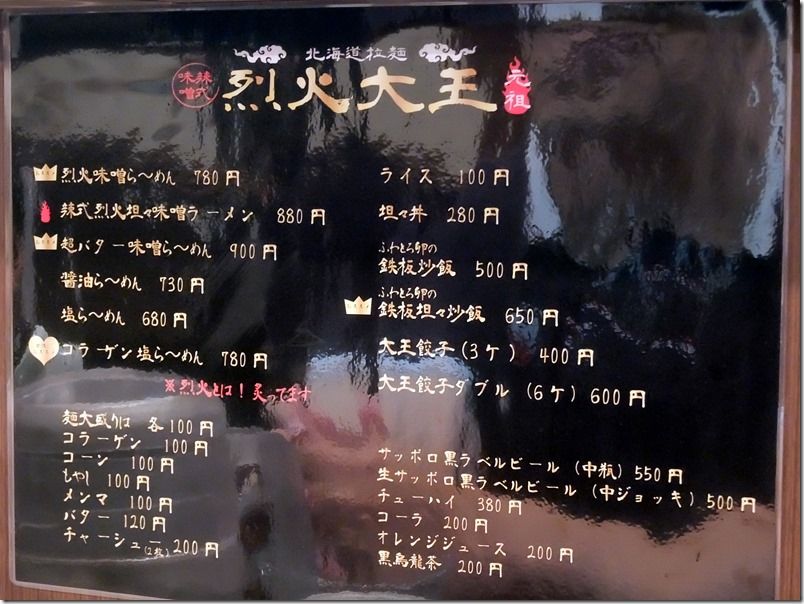 北海道拉麺
辣式味噌
烈火大王
元祖
烈火味噌ら〜めん 780円
辣式烈火坦々味噌ラーメン 880円
超バター味噌ら〜めん 900円
醤油ら〜めん 730円
塩ら〜めん 680円
コラーゲン塩ら〜めん 780円
※烈火とは！炙ってます
麺大盛りは 各100円
コラーゲン 100円
コーン 100円
もやし 100円
メンマ 100円
バター 120円
チャーシュー(2枚) 200円
ライス 100円
坦々丼 280円
ふわとろ卵の
鉄板炒飯 500円
ふわとろ卵の
鉄板坦々炒飯 650円
大王餃子(3ケ) 400円
大王餃子ダブル (6ケ) 600円
サッポロ黒ラベルビール (中瓶) 550円
生サッポロ黒ラベルビール (中ジョッキ) 500円
チューハイ 380円
コーラ 200円
オレンジジュース 200円
黒烏龍茶 200円